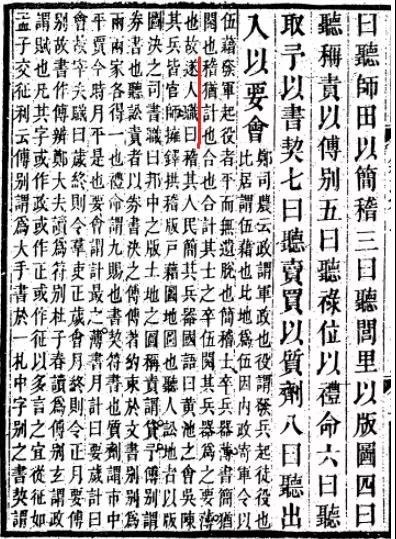 曰聽師田以簡稽三曰聽閭里以版圖四曰
聽稱責以傅别五曰聽祿位以禮命六曰聽
取予以書契七曰聽賣買以質劑八曰聽出
入以要會
鄭司農云政謂軍政也役謂發兵起徒役也
比居謂伍籍也比地爲伍因内政寄軍令以
伍藉發軍起役者平而無遺脫也簡稽士卒兵器薄書簡猶
閱也稽猶計也合也合計其士之卒伍閱其兵器爲之要薄
也故遂人職曰稽其人民簡其兵器國語曰黄池之會吳陳
其兵皆官師擁鐸拱稽版戶藉圖地圖也聽人訟地者以版
圖決之司書職曰邦中之版土地之圖稱責謂貸予傅别謂
劵書也聽訟責者以劵書決之傅傅著約束於文書别别爲
兩兩家各得一也禮命謂九賜也書契符書也質劑謂市中
平賈今時月平是也要會謂計最之薄書月計曰要歲計曰
會故宰夫職曰歲終則令羣吏正歲會月終則令正月要傅
别故書作傅辨鄭大夫讀爲符别杜子春讀爲傅别玄謂政
謂賦也凡其字或作政或作正或作征以多言之宜從征如
孟子交征利云傅别謂爲大手書於一札中字别之書契謂